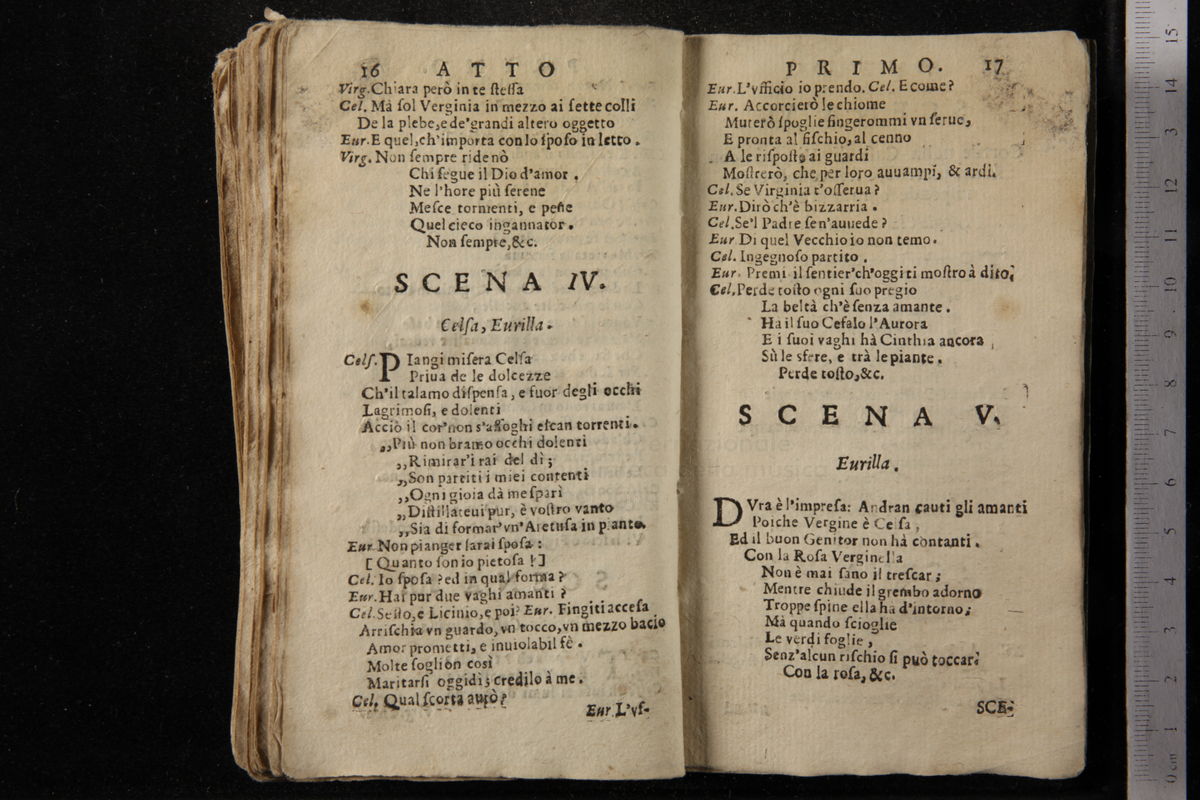 16 ATTO
Virg. Chiara però in te ſteſſa
Cel. Mà ſol Verginia in mezzo ai ſette colli
De la plebe, e de'grandi altero oggetto
Eur. E quel, ch'importa con lo ſpoſo in letto.
Virg. Non ſempre ride nò
Chi ſegue il Dio d'amor.
Ne l'hore più ſerene
Meſce tormenti, e pene
Quel cieco ingannator.
Non ſempre, &c.
SCENA IV.
Celſa, Eurilla.
Celſ. PIangi miſera Celſa
Priua de le dolcezze
Ch'il talamo diſpenſa, e fuor degli occhi
Lagrimoſi, e dolenti
Acciò il cor'non s'affoghi eſcan torrenti.
„Più non bramo occhi dolenti
„Rimirar'i rai del dì;
„Son partiti i miei contenti
„Ogni gioia dà me ſparì
„Diſtillateui pur, è voſtro vanto
„Sia di formar'vn'Aretuſa in pianto.
Eur. Non pianger ſarai ſpoſa:
[Quanto ſon io pietoſa!]
Cel. Io ſpoſa? ed in qual forma?
Eur. Hai pur due vaghi amanti?
Cel. Seſto, e Licinio, e poi? Eur. Fingiti acceſa
Arriſchia vn guardo, vn tocco, vn mezzo bacio
Amor prometti, e inuiolabil fè.
Molte ſoglion così
Maritarſi oggidì; credilo à me.
Cel. Qual ſcorta aurò?
Eur. L'vf-
PRIMO. 17
Eur. L'vfficio io prendo. Cel. E come?
Eur. Accorcierò le chiome
Muterò ſpoglie fingerommi vn ſeruo,
E pronta al fiſchio, al cenno
A le riſpoſte ai guardi
Moſtrerò, che per loro auuampi, & ardi.
Cel. Se Virginia t'oſſerua?
Eur. Dirò ch'è bizzarria.
Cel. Se'l Padre ſen'auuede?
Eur Di quel Vecchio io non temo.
Cel. Ingegnoſo partito.
Eur. Premi il ſentier'ch'oggi ti moſtro à dito;
Cel. Perde toſto ogni ſuo pregio
La beltà ch'è ſenza amante.
Ha il ſuo Cefalo l'Aurora
E i ſuoi vaghi hà Cinthia ancora
Sù le sfere, e trà le piante.
Perde toſto, &c.
SCENA V.
Eurilla.
DVra è l'impreſa: Andran cauti gli amanti
Poiche Vergine è Celſa,
Ed il buon Genitor non hà contanti.
Con la Roſa Verginella
Non è mai ſano il treſcar;
Mentre chiude il grembo adorno
Troppe ſpine ella ha d'intorno;
Mà quando ſcioglie
Le verdi foglie,
Senz'alcun riſchio ſi può toccar.
Con la roſa, &c.
SCE-